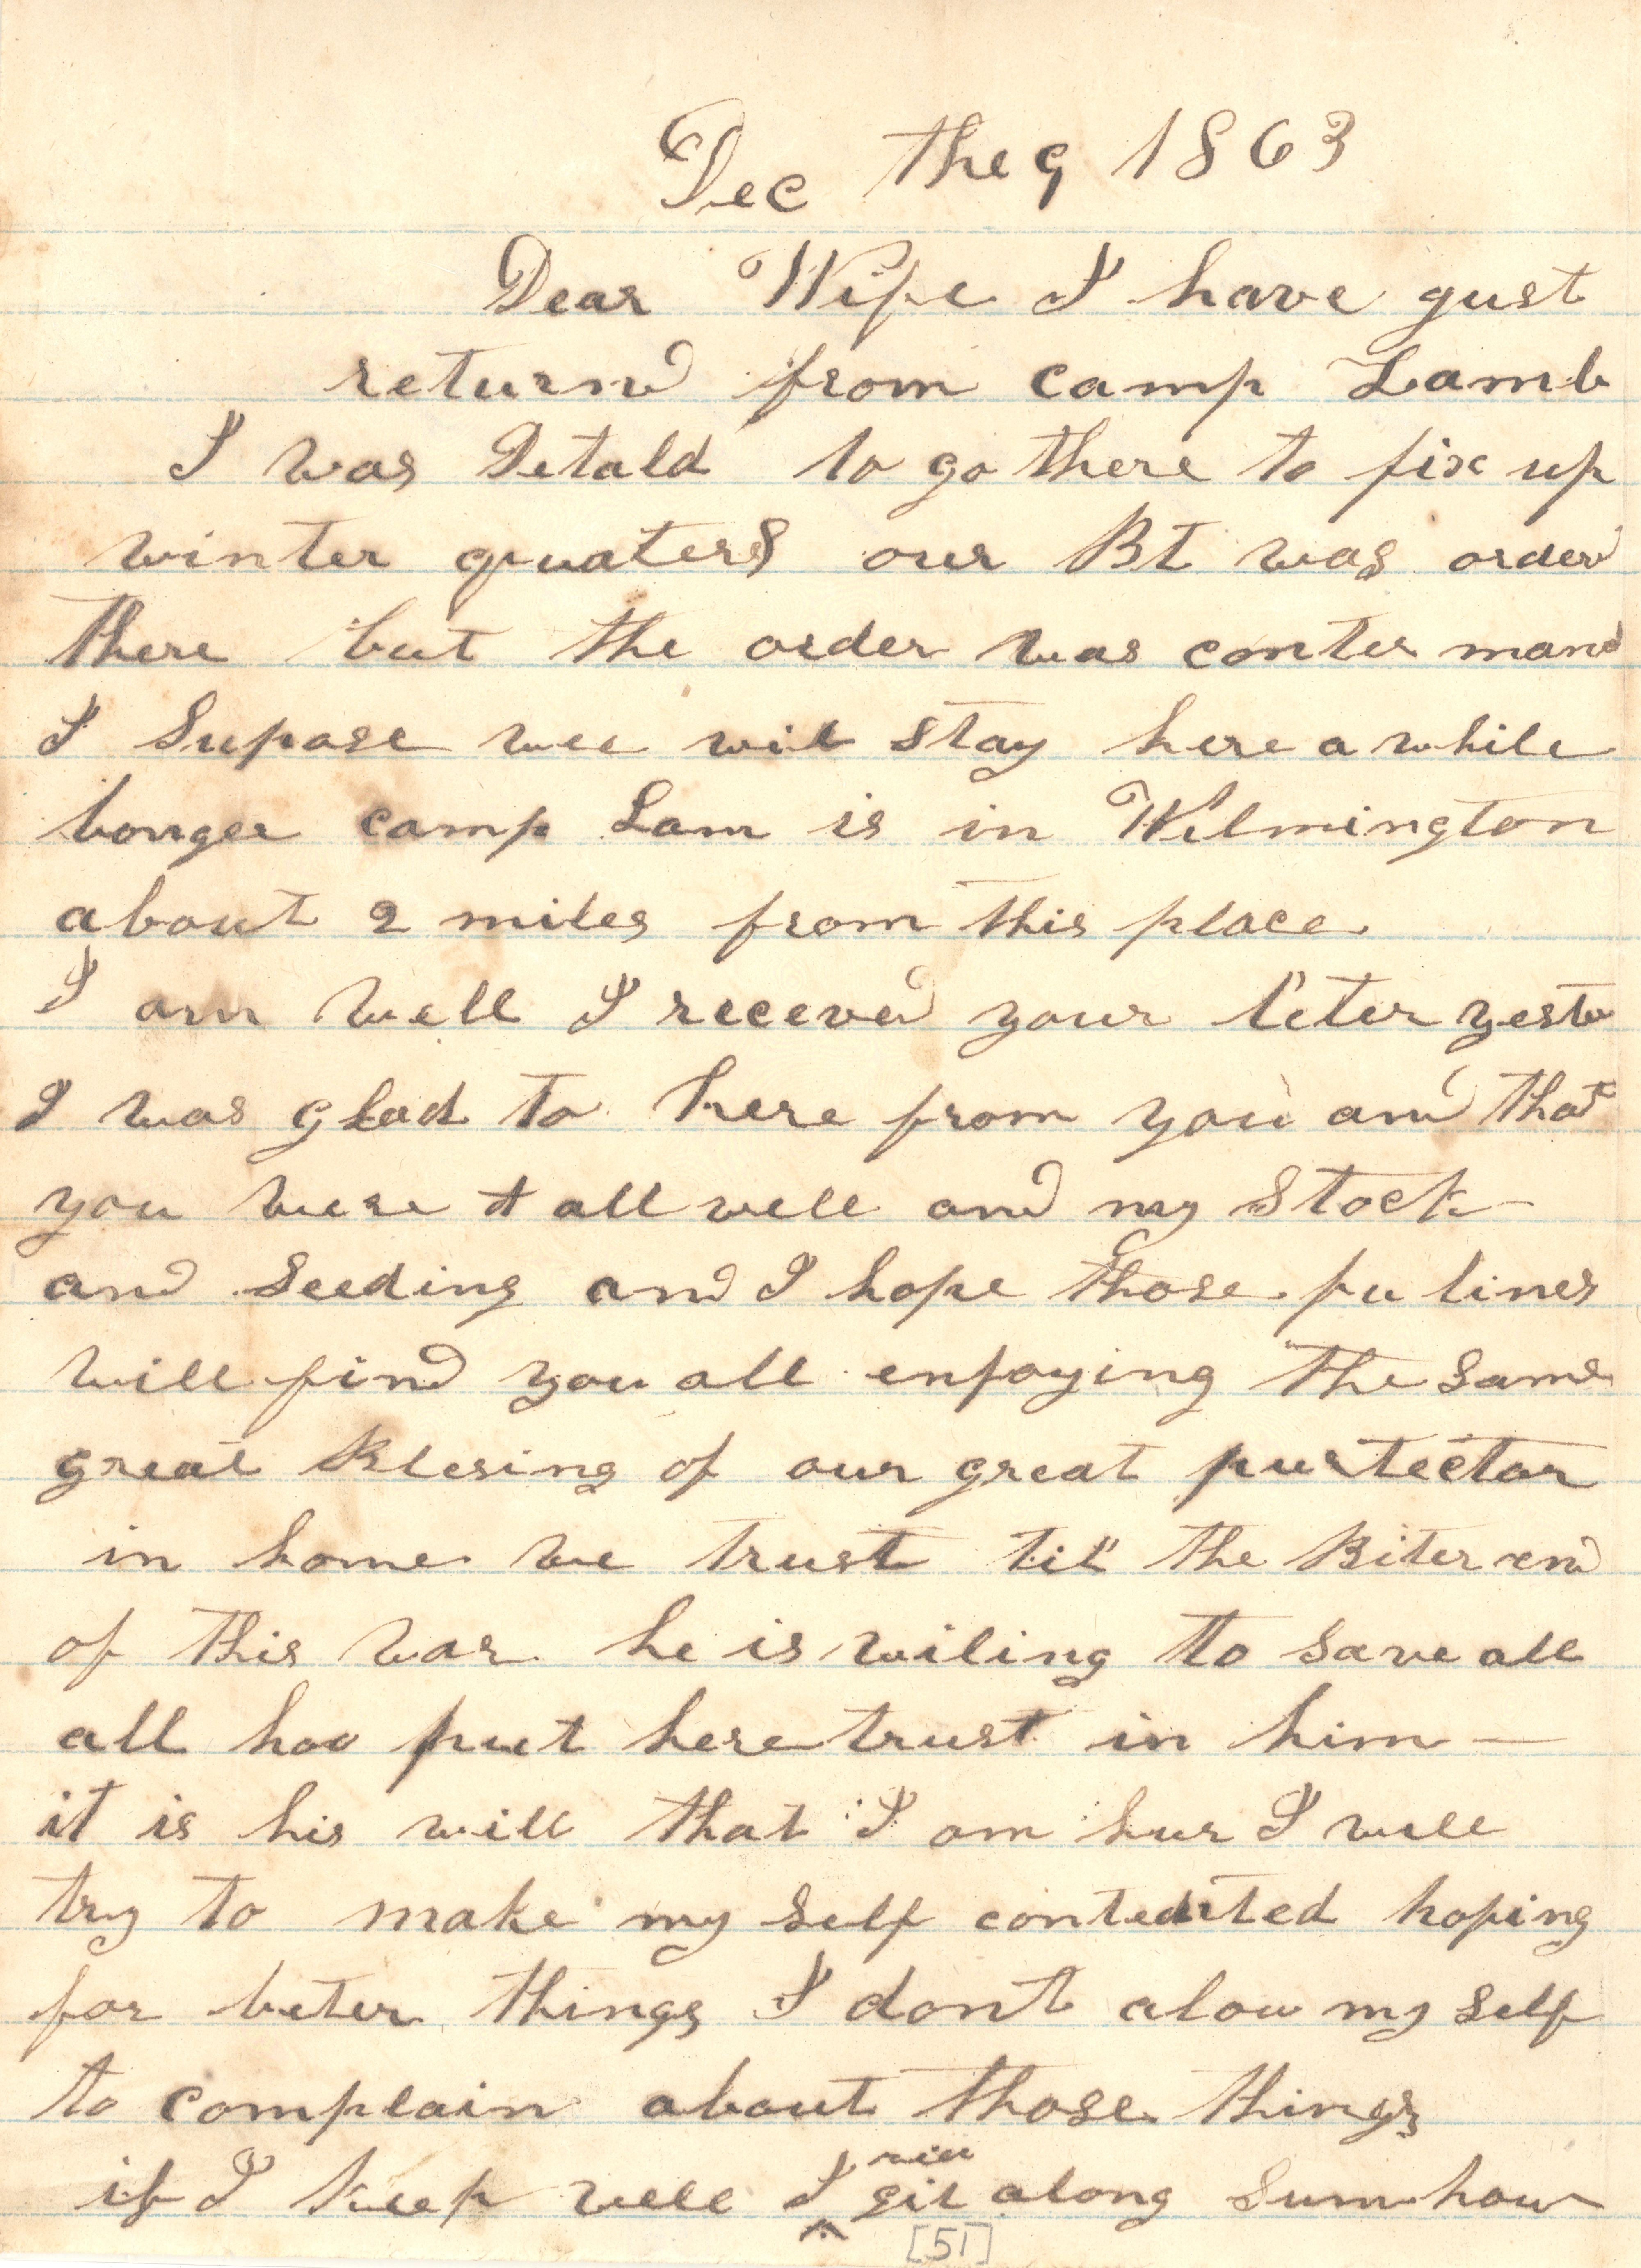 Dec the 9 1863
Dear Wife I have gust
returnd from camp Lamb
I was Detald to go there to fix up
winter quaters our Bt was orderd
there but the order was conter mand
I Supose wee wil stay here a while
longer camp Lam is in Wilmington
about 2 miles from this place
I am well I receved your leter yester
I was glad to here from you and that
you were all well and my Stock
and Seeding and I hope those fu lines
will find you all enjoying the same
great Blesing of our great purtector
in home we trust til the Biter end
of this war he is wiling to save all
all hoo put here trust in him —
it is his will that I am hur I will
try to make my self contented hoping
for beter things I dont alow my self
to complain about those things
if I keep well I will git along sum how
[51]